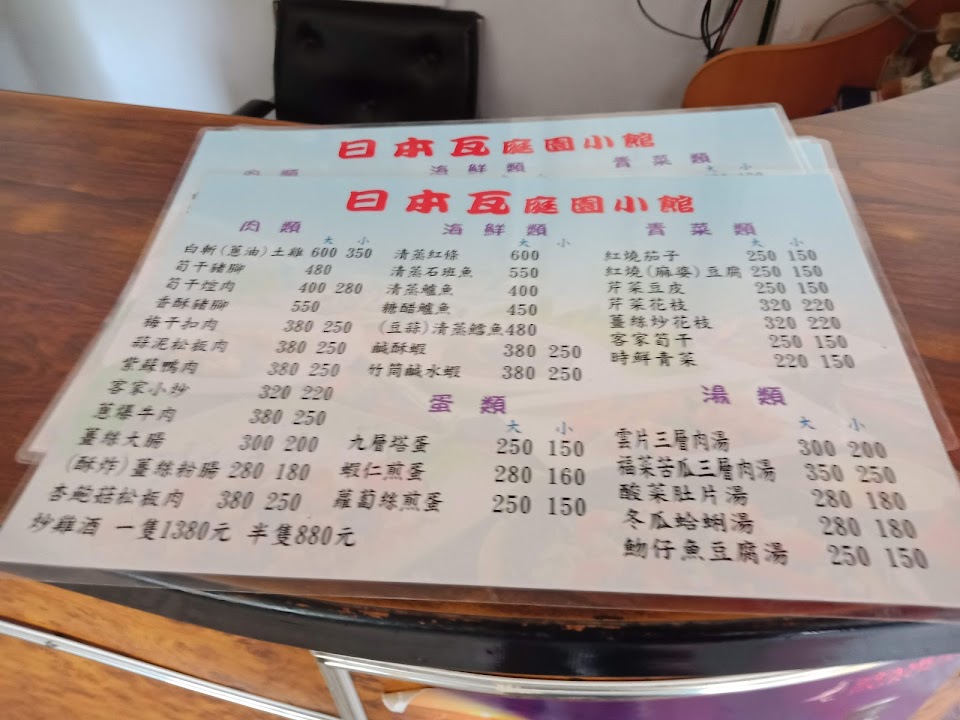 日本瓦庭園小館
肉類 海鮮類 青菜類
大 小
日本瓦庭園小館
肉類
大 小
白斬(蔥油)土雞 600 350
筍干豬腳 480
筍干焢肉 400 280
香酥豬腳 550
梅干扣肉 380 250
蒜泥松板肉 380 250
紫蘇鴨肉 380 250
客家小炒 320 220
蔥爆牛肉 380 250
薑絲大腸 300 200
(酥炸)薑絲粉腸 280 180
杏鮑菇松板肉 380 250
炒雞酒 一隻1380元 半隻880元
海鮮類
大 小
清蒸紅條 600
清蒸石班魚 550
清蒸鱸魚 400
糖醋鱸魚 450
(豆蒜)清蒸鱈魚 480
鹹酥蝦 380 250
竹筒鹹水蝦 380 250
蛋類
大 小
九層塔蛋 250 150
蝦仁煎蛋 280 160
蘿蔔絲煎蛋 250 150
青菜類
大 小
紅燒茄子 250 150
紅燒(麻婆)豆腐 250 150
芹菜豆皮 250 150
芹菜花枝 320 220
薑絲炒花枝 320 220
客家筍干 250 150
時鮮青菜 220 150
湯類
大 小
雲片三層肉湯 300 200
福菜苦瓜三層肉湯 350 250
酸菜肚片湯 280 180
冬瓜蛤蜊湯 280 180
魩仔魚豆腐湯 250 150